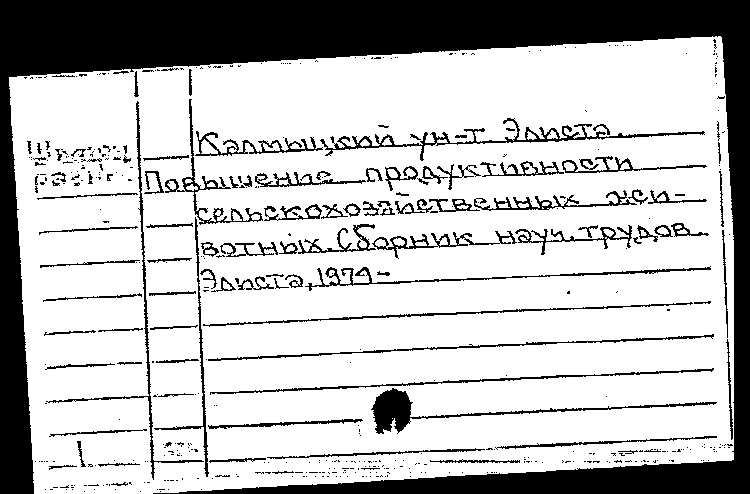 Калмыцкий ун-т Элиста.
Повышение продуктивности
сельскохозяйственных жи-
вотных. Сборник науч. трудов.
Элиста, 1974-